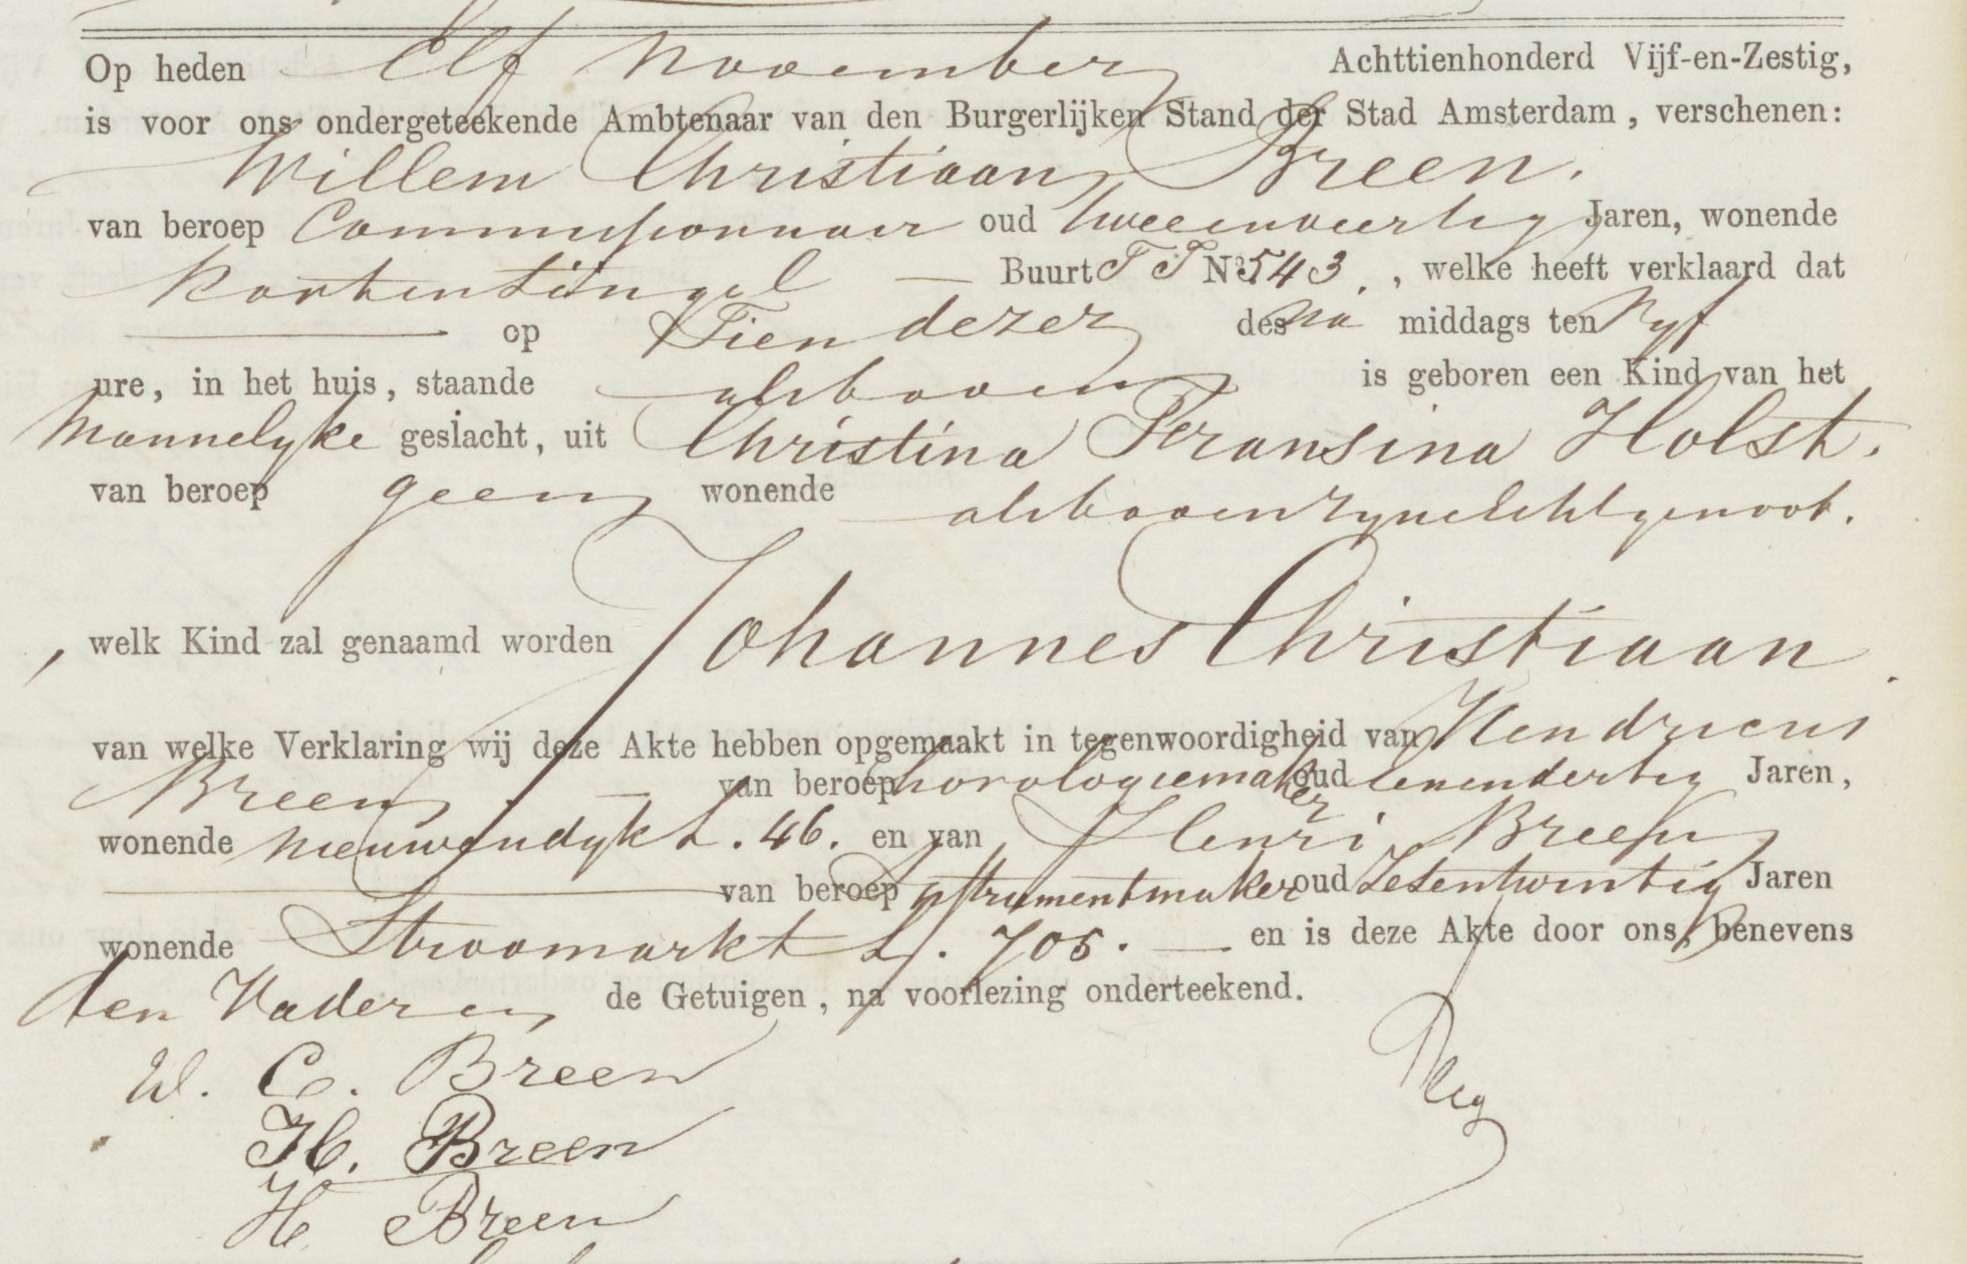 Op heden Elf November Achttienhonderd Vijf-en-Zestig,
is voor ons ondergeteekende Ambtenaar van den Burgerlijken Stand der Stad Amsterdam, verschenen:
Willem Christiaan Breen.
van beroep Commissionnair oud tweeenveertig Jaren, wonende
Kortensingel — Buurt T T No 543., welke heeft verklaard dat
op Tien dezer des Na middags ten Vyf
ure, in het huis, staande alsboven is geboren een Kind van het
Mannelyke geslacht, uit Christina Fransina Holst.
van beroep geen wonende alsboven zyne Echtgenoot.
, welk Kind zal genaamd worden Johannes Christiaan.
van welke Verklaring wij deze Akte hebben opgemaakt in tegenwoordigheid van Hendricus
Breen — van beroep horologiemaker oud eenendertig Jaren,
wonende Nieuwendyk L. 46. en van Henri Breen
van beroep instrumentmaker oud Zesentwintig Jaren
wonende Stroomarkt L. 705. — en is deze Akte door ons, benevens
den Vader en de Getuigen, na voorlezing onderteekend.
W. C. Breen
H. Breen
H Breen